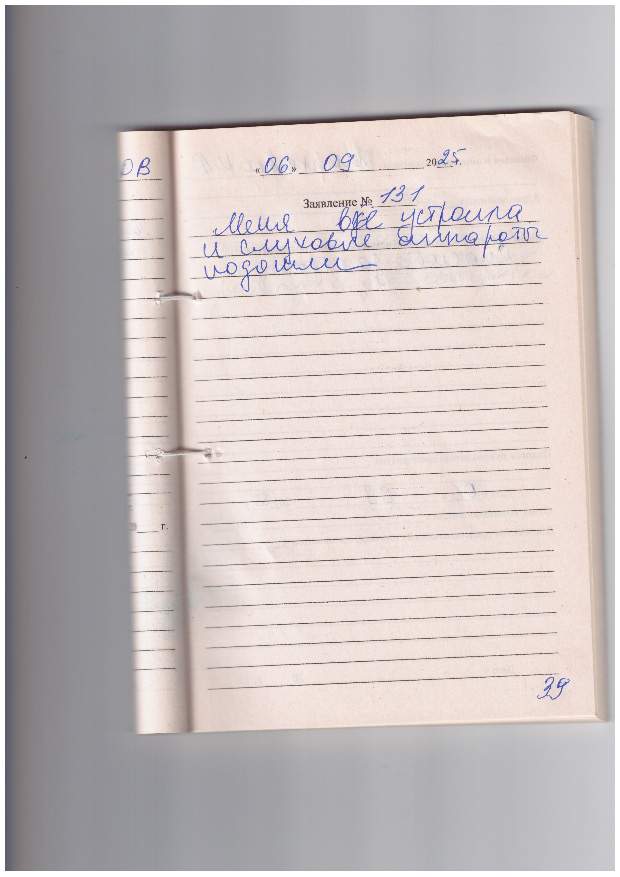 ОВ
«06» 09 2025г.
Заявление № 131
Меня все устроила
и слуховые аппараты
подошли
г.
39